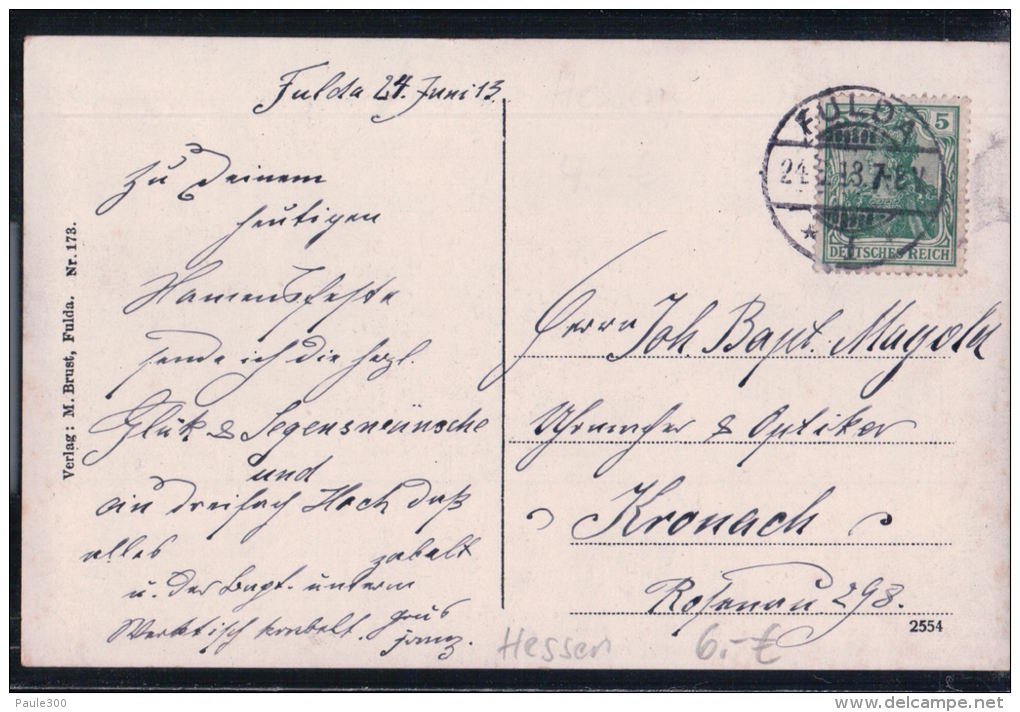 Fulda 24. Juni 13
Zu Deinem
heutigen
Namensfeste
sende ich die hrzl.
Glük & Segenswünsche
und
ein dreifach Hoch daß
alles zabelt
u. der Bapt. unterm
Werktisch krabelt. Grus
Franz.
Verlag: M. Brust, Fulda. Nr. 173.
FULDA
24.6.13.7-8V.
* 1 *
5
DEUTSCHES REICH
Herrn Joh. Bapt. Magold
Uhrmacher & Optiker
Kronach
Rosenau 298.
2554
Hessen 6.-€
Paule300
www.delcampe.net